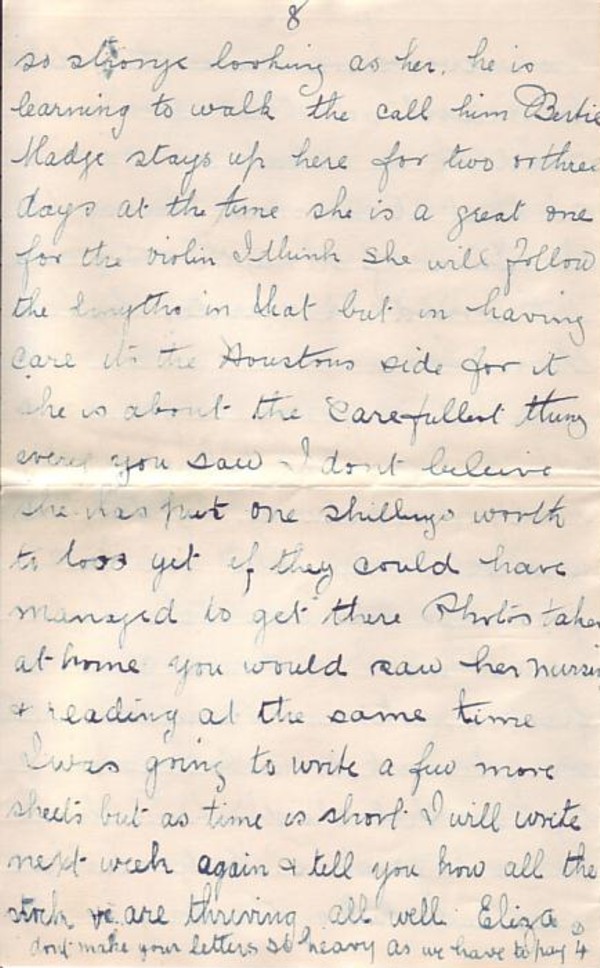 8
so stronge looking as her. he is
learning to walk the call him Bertie
Madge stays up here for two or three
days at the time she is a great one
for the violin I think she will follow
the Smyths in that but in having
care its the Houstons side for it
she is about the carefullest thing
every you saw I dont beleive
she has put one shillings worth
to loss yet if they could have
managed to get there Photos taken
at home you would saw her nursing
& reading at the same time
I was going to write a few more
sheets but as time is short I will write
next week again & tell you how all the
stock are thriving all well Eliza
dont make your letters so heavy as we have to pay 4D